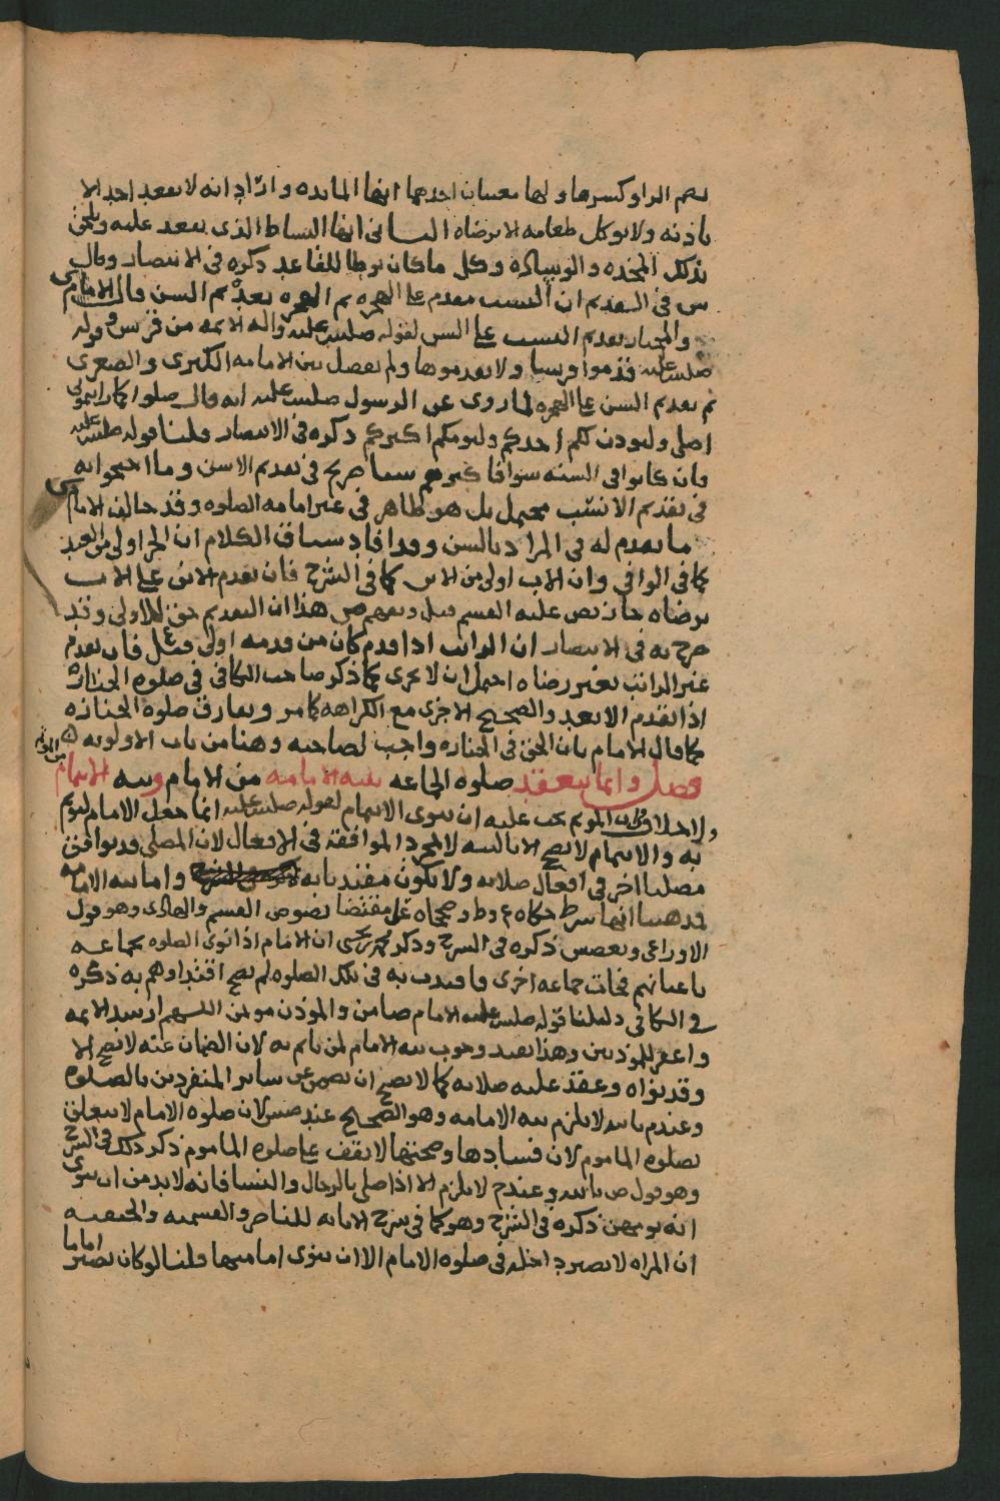 بضم الرا وكسرها ولها معنيان احدهما انها المايده واراد انه لا يقعد احد الا
باذنه ولا يوكل طعامه الا برضاه الثاني انها البساط الذي يقعد عليه ويلحق
بذلك المخده والوساده وكل ما كان توطا للقاعد ذكره في الانتصار وقال
س في التقديم ان النسب مقدم على الهجره ثم الهجره بعده ثم السن قال الامام ى
والمختار تقديم النسب على السن لقوله صلى الله عليه واله الايمه من قريش وقوله
صلى الله عليه قدموا قريشا ولا تقدموها ولم يفصل بين الامامه الكبرى والصغرى
ثم تقديم السن على الهجره لما روى عن الرسول صلى الله عليه انه قال صلوا كما رايتموني
اصلي وليوذن لكم احدكم وليومكم اكبركم ذكره في الانتصار قلنا قوله صلى الله عليه
فان كانوا في السنه سوا فاكبرهم سنا صريح في تقديم الاسن وما احتجوا به
في تقديم الانسب محتمل بل هو ظاهر في غير امامه الصلوه وقد خالف الامام ى
ما تقدم له في المراد بالسن وقد افاد سياق الكلام ان الحر اولى من العبد
كما في الوافي وان الاب اولى من الابن كما في الشرح فان تقدم الابن على الاب
برضاه جاز نص عليه القسم قيل ويفهم من هذا ان التقديم حق للاولى وقد
صرح به في الانتصار ان الراتب اذا قدم كان من قدمه اولى قيل فان تقدم
غير الراتب بغير رضاه احتمل ان لا يجزى كما ذكر صاحب الكافي في صلوه الجنازه
اذا تقدم الابعد والصحيح الاجزى مع الكراهه كما مر ويفارق صلوه الجنازه
كما قال الامام بان الحق في الجنازه واجب لصاحبه وهنا من باب الاولويه
فصل وانما ينعقد صلوه الجماعه بنيه الامامه من الامام ونيه الائتمام من الموتم
ولا خلاف ان الموتم يجب عليه ان ينوى الائتمام لقوله صلى الله عليه انما جعل الامام ليوتم
به والائتمام لا يصح الا بالنيه لا لمجرد الموافقه في الافعال لان المصلي قد يوافق
مصليا اخر في افعال صلاته ولا يكون مقتديا به واما نيه الامامه
فمذهبنا انها شرط حكاه ع وط وصححاه على مقتضا نصوص القسم والهادى وهو قول
الاوزاعى وبعض ذكره في الشرح وذكر محمد بن يحيى ان الامام اذا نوى الصلوه بجماعه
باعيانهم فجات جماعه اخرى واقتدت به في تلك الصلوه لم يصح اقتداوهم به ذكره
في الكافي دليلنا قوله صلى الله عليه الامام ضامن والموذن موتمن اللهم ارشد الايمه
واغفر للموذنين وهذا يفيد وجوب نيه الامام لمن ياتم به لان الضمان عنه لا يصح الا
وقد نواه وعقد عليه صلاته كما لا يصح ان يضمن عن ساير المنفردين بالصلوه
وعند م بالله لا يلزم نيه الامامه وهو الصحيح عند ص ش لان صلوه الامام لا يتعلق
بصلوه الماموم لان فسادها وصحتها لا يقف على صلوه الماموم ذكر ذلك في الشرح
وهو قول ص بالله وعند ح لا يلزم الا اذا صلى بالرجال والنسا فانه لا بد من ان ينوى
انه يومهن ذكره في الشرح وهو كما في شرح الابانه للناصر والقسميه والحنفيه
ان المراه لا تصير داخله في صلوه الامام الا ان ينوى امامتها قلنا لو كان يصير اماما